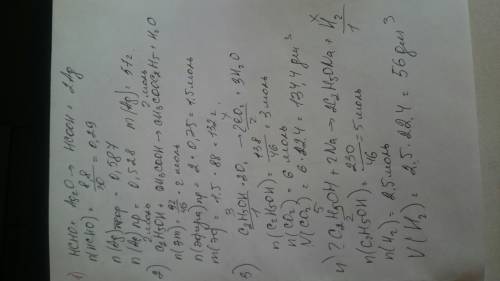 1) HCHO + Ag2O → HCOOH + 2Ag
n(HCHO) = 8,8/30 = 0,29
n(Ag) теор = 0,587
n(Ag) пр = 0,528 m(Ag) = 57г
2) C2H5OH + CH3COOH → CH3COOC2H5 + H2O
2моль 2моль
n(эт) = 92/46 = 2 моль
n(эфира) пр = 2 · 0,75 = 1,5 моль
m(эф) = 1,5 · 88 = 132г
3) C2H5OH + 3O2 → 2CO2 + 3H2O
n(C2H5OH) = 138/46 = 3 моль
n(CO2) = 6 моль
V(CO2) = 6 · 22,4 = 134,4 дм3
4) 2C2H5OH + 2Na → 2C2H5ONa + H2
n(C2H5OH) = 230/46 = 5 моль
n(H2) = 2,5 моль
V(H2) = 2,5 · 22,4 = 56 дм3